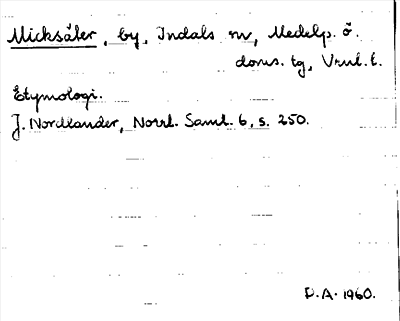 Micksäter, by, Indals sn, Medelp. ö.
doms. tg, Vnul. l.
Etymologi.
J. Nordlander, Norrl. Saml. 6, s. 250.
D.A. 1960.